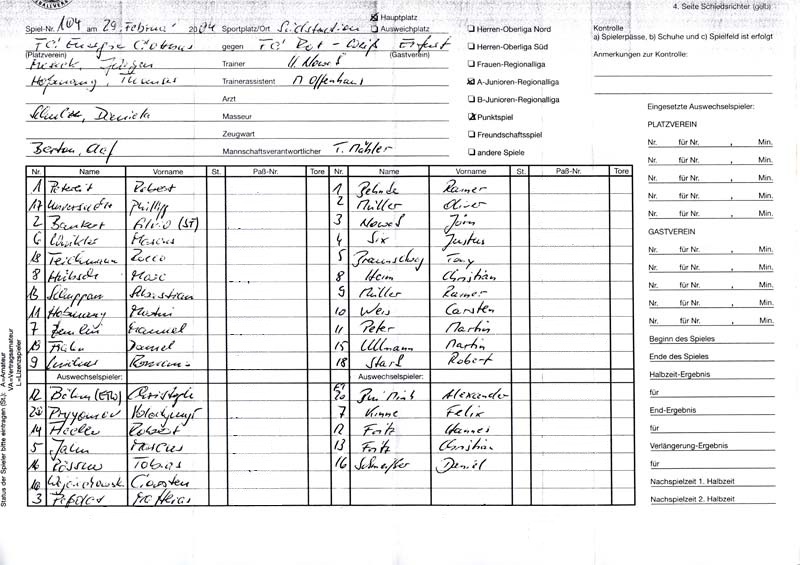 4. Seite Schiedsrichter (gelb)
Spiel-Nr. 104 am 29. Februar 2004 Sportplatz/Ort Südstadion
Hauptplatz
Ausweichplatz
FC Energie Cottbus gegen FC Rot-Weiß Erfurt
(Platzverein) (Gastverein)
Trainer U. Nowes
Hoßmang, Thomas Trainerassistent M. Offenhaus
Arzt
Schulze, Daniela Masseur
Zeugwart
Berton, Olaf Mannschaftsverantwortlicher T. Mähler
Herren-Oberliga Nord
Herren-Oberliga Süd
Frauen-Regionalliga
A-Junioren-Regionalliga
B-Junioren-Regionalliga
Punktspiel
Freundschaftsspiel
andere Spiele
Kontrolle
a) Spielerpässe, b) Schuhe und c) Spielfeld ist erfolgt
Anmerkungen zur Kontrolle:
Nr. Name Vorname St. Paß-Nr. Tore Nr. Name Vorname St. Paß-Nr. Tore
1 Robert 1 Behnke Rainer
17 Philipp 2 Müller Oliver
2 Bankert Silvio (ST) 3 Nowes Jörn
6 Winkler Marcus 4 Six Justus
18 Teichmann Rocco 5 Braunschweig Tony
8 Hübsch Marc 8 Heim Christian
13 Schuppan Sebastian 9 Müller Rainer
11 Hoßmang Martin 10 Weis Carsten
7 Manuel 11 Peter Martin
19 Daniel 15 Ullmann Martin
9 18 Stars Robert
Auswechselspieler: Auswechselspieler:
12 Böhm (ETW) Christoph ET 20 Alexander
20 7 Kinne Felix
14 Robert 12 Fritz Hannes
5 Jahn Marcus 13 Fritz Christian
16 Tobias 16 Daniel
Carsten
3 Matthias
Status der Spieler bitte eintragen (St.): A=Amateur
VA=Vertragsamateur
L=Lizenzspieler
Eingesetzte Auswechselspieler:
PLATZVEREIN
Nr. für Nr. , Min.
Nr. für Nr. , Min.
Nr. für Nr. , Min.
Nr. für Nr. , Min.
Nr. für Nr. , Min.
GASTVEREIN
Nr. für Nr. , Min.
Nr. für Nr. , Min.
Nr. für Nr. , Min.
Nr. für Nr. , Min.
Nr. für Nr. , Min.
Beginn des Spieles
Ende des Spieles
Halbzeit-Ergebnis
für
End-Ergebnis
für
Verlängerung-Ergebnis
für
Nachspielzeit 1. Halbzeit
Nachspielzeit 2. Halbzeit